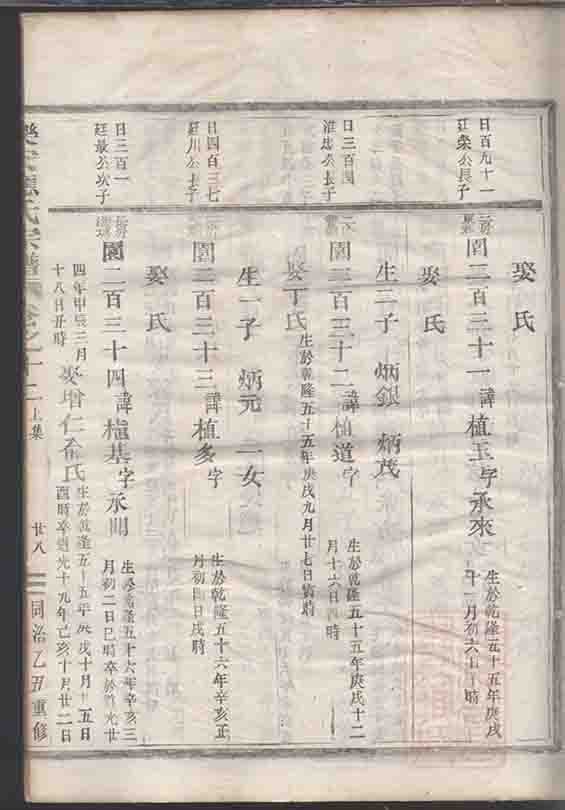 娶氏
日百九十一
廷棠公長子
園二百三十一 諱植玉字承來 生於乾隆五十五年庚戌
十一月初六日 時
娶氏
生二子 炳銀 炳茂
日三百四
淮忠公長子
園二百三十二 諱植道字 生於乾隆五十五年庚戌十二
月十六日酉時
娶丁氏 生於乾隆五十五年庚戌九月廿七日寅時
生一子 炳元 一女
日四百三七
廷川公長子
園二百三十三 諱植多字 生於乾隆五十六年辛亥正
月初四日戌時
娶氏
日三百一
廷最公次子
園二百三十四 諱植基字承則 生於乾隆五十六年辛亥三
月初二日巳時卒於道光廿
四年甲辰三月
十八日丑時
娶增仁俞氏 生於乾隆五十五年庚戌十月十五日
酉時卒道光十九年己亥十月廿二日
氏宗譜 卷之十二上集 廿八 同治乙丑重修